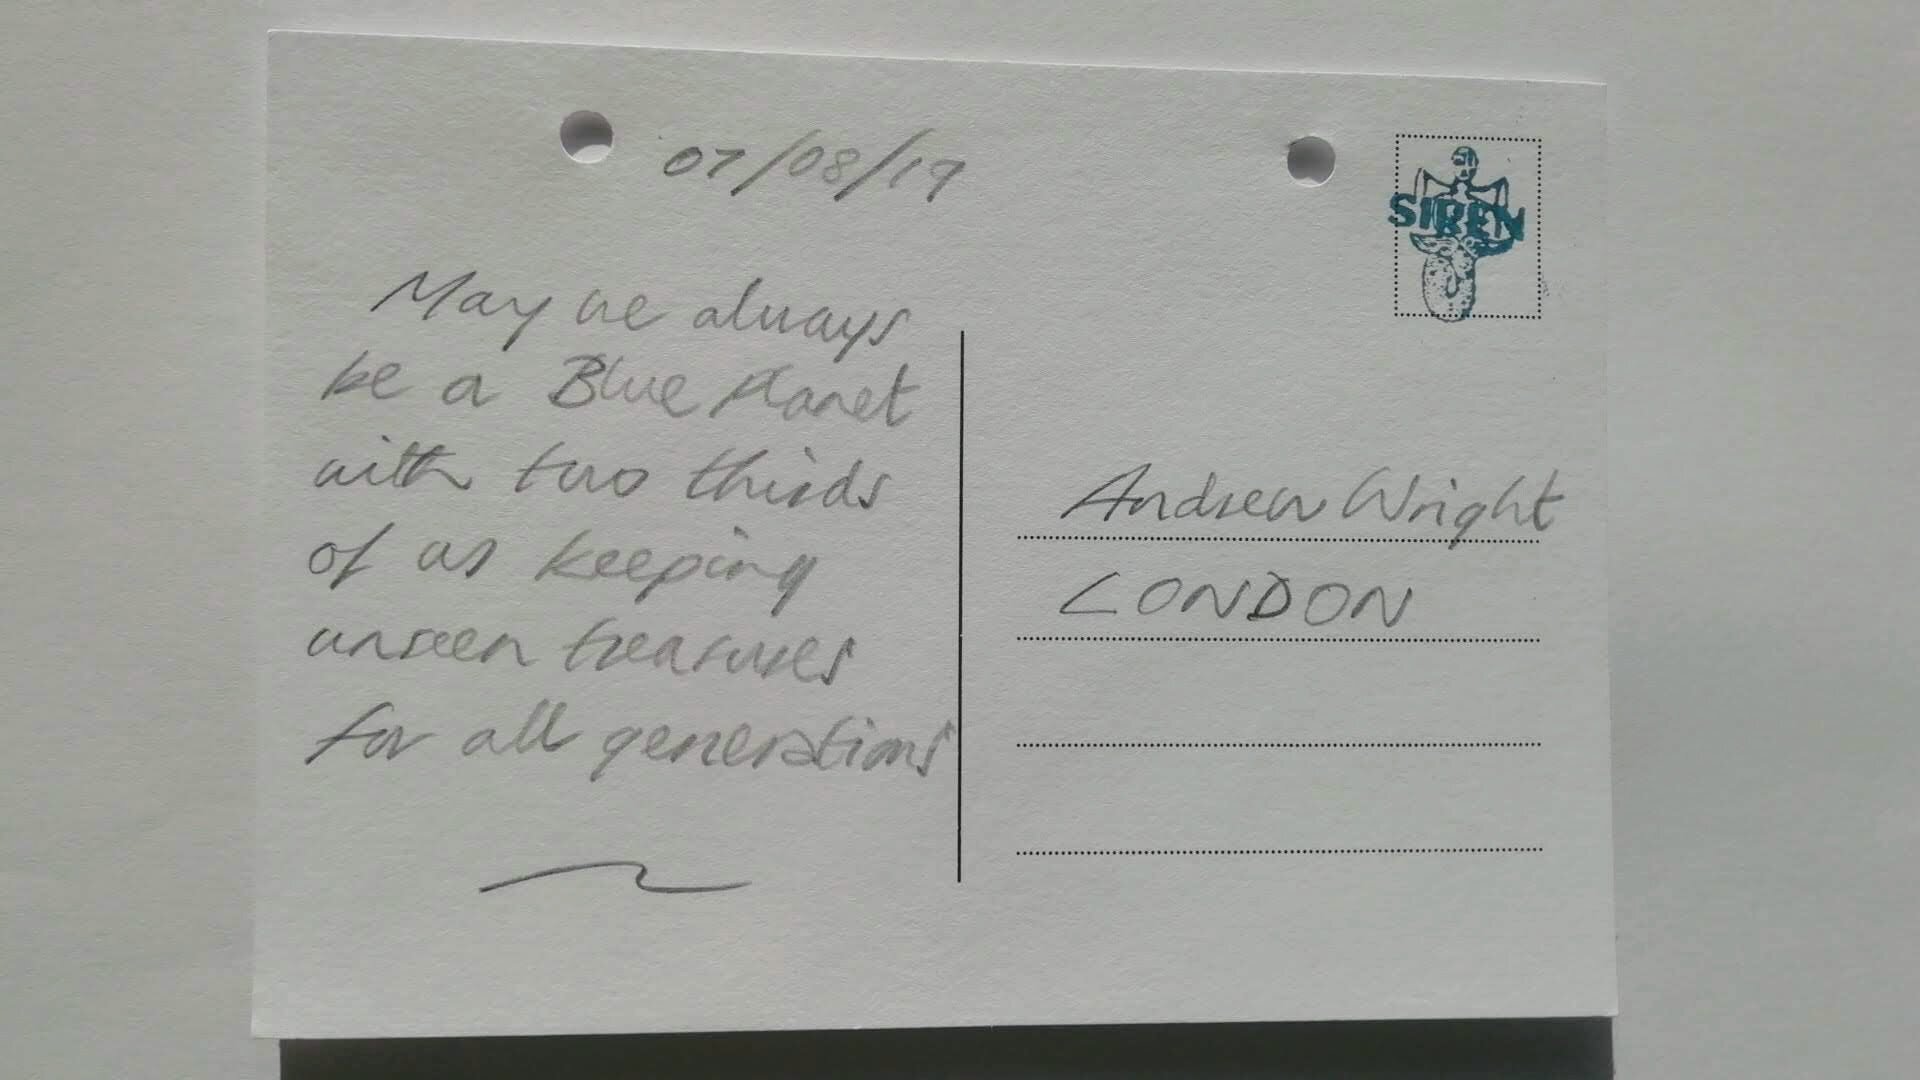 07/08/19
May we always
be a Blue Planet
with two thirds
of us keeping
unseen treasures
for all generations
SIREN
Andrew Wright
LONDON